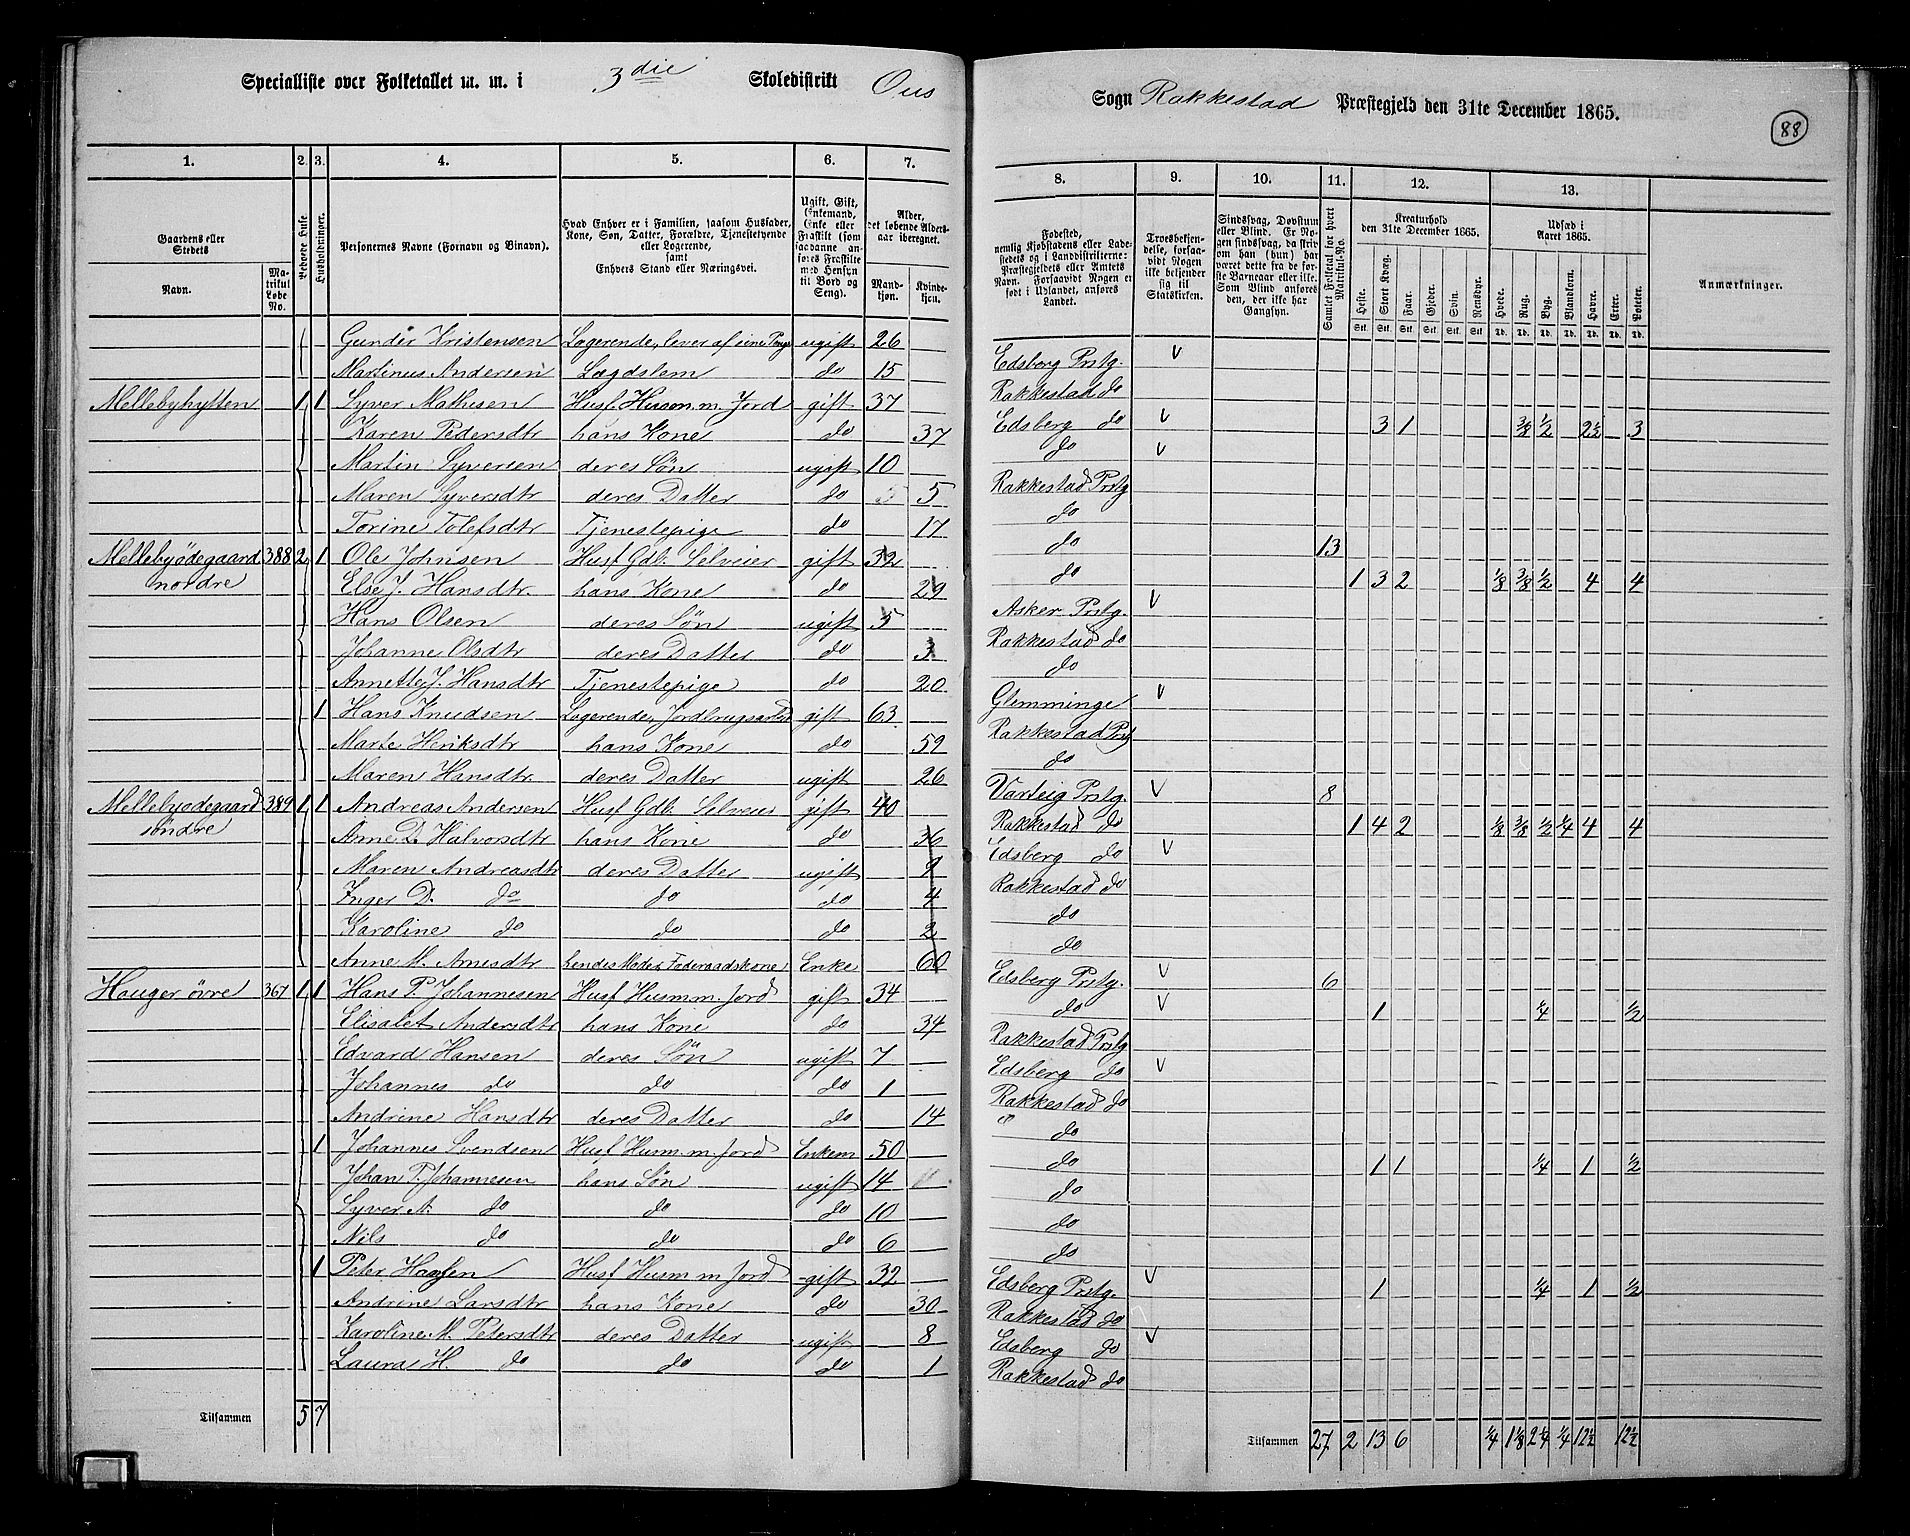 Specialliste over Folketallet m. m. i 3die Skoledistrikt Ous Sogn Rakkestad Præstegjeld den 31te December 1865.
88
1. 2. 3. 4. 5. 6. 7. 8. 9. 10. 11. 12. 13.
Gaardens eller Stedets Navn. Matrikul Løbe No. Beboede Huse Husholdninger. Personernes Navne (Fornavn og Binavn). Hvad Enhver er i Familien, saasom Husfader, Kone, Søn, Datter, Forældre, Tjenestetyende eller Logerende, samt Enhvers Stand eller Næringsvei. Ugift, Gift, Enkemand, Enke eller Fraskilt (som saadanne anføres Fraskilte med Hensyn til Bord og Seng). Alder, det løbende Alders-aar iberegnet. Mandkjøn. Kvindekjøn.
Fødested, nemlig Kjøbstadens eller Ladestedets og i Landdistrikterne: Præstegjeldets eller Amtets Navn. Forsaavidt Nogen er født i Udlandet, anføres Landet. Troesbekjendelse, forsaavidt Nogen ikke bekjender sig til Statskirken. Sindssvag, Døvstum eller Blind. Er Nogen sindssvag, da skriv om han (hun) har været dette fra de første Barneaar eller ikke. Som Blind anføres den, der ikke har Gangsyn. Samlet Folketal for hvert Matrikul-No. Kreaturhold den 31te December 1865. Heste. Stort Kvæg. Faar. Gjeder. Svin. Rensdyr. Udsæd i Aaret 1865. Hvede. Rug. Byg. Blandkorn. Havre. Erter. Poteter. Anmærkninger.
Stk. Stk. Stk. Stk. Stk. Stk. Td. Td. Td. Td. Td. Td. Td.
Gunder Kristensen Logerende, lever af sine Penge ugift 26 Edsberg Prstg. v
Martinus Andersen Lægdslem do 15 Rakkestad do
Mellebyhytten 1 1 Syver Mathisen Husf. Husm. m. Jord gift 37 Edsberg do v 3 1 3/8 1/2 2 1/2 3
Karen Pedersdtr hans Kone do 37 do v
Martin Syversen deres Søn ugift 10 Rakkestad Prstg
Maren Syversdtr deres Datter do 5 do
Torine Tolefsdtr Tjenestepige do 17 do 13
Mellebyødegaard nordre 388 2 1 Ole Johnsen Husf Gdb. Selveier gift 32 do 1 3 2 1/8 3/8 1/2 4 4
Else J. Hansdtr. hans Kone do 29 Asker Prstg. v
Hans Olsen deres Søn ugift 5 Rakkestad do
Johanne Olsdtr deres Datter do 3 do
Annette J. Hansdtr Tjenestepige do 20 Glemminge v
1 Hans Knudsen Logerende, Jordbrugsarbeid gift 63 Rakkestad Prstg
Marte Henriksdtr hans Kone do 59 do
Maren Hansdtr. deres Datter ugift 26 Varteig Prstg. v 8
Mellebyødegaard søndre 389 1 1 Andreas Andersen Husf Gdb. Selveier gift 40 Rakkestad do 1 4 2 1/8 3/8 1/2 1/4 4 4
Anne D. Halvorsdtr hans Kone do 36 Edsberg do v
Maren Andreasdtr deres Datter ugift 9 Rakkestad do
Inger D. do do do 4 do
Karoline do do do 2 do
Anne M. Arnesdtr hendes Moder, Føderaadskone Enke 60 Edsberg Prstg. v 6
Hauger øvre 367 1 1 Hans P. Johannesen Husf Husm m. Jord gift 34 do v 1 1/4 1/2
Elisabet Andersdtr hans Kone do 34 Rakkestad Prstg
Edvard Hansen deres Søn ugift 7 Edsberg do v
Johannes do do do 1 Rakkestad do
Andrine Hansdtr deres Datter do 14 do
1 Johannes Svendsen Husf Husm. m. Jord Enkem 50 do 1 1 1/4 1 1/2
Johan P. Johannesen hans Søn ugift 14 do
Syver A. do do do 10 do
Nils do do do 6 do
1 Peter Hansen Husf Husm m Jord gift 32 Edsberg Prstg. v 1 1/4 1 1/2
Andrine Larsdtr hans Kone do 30 Rakkestad do
Karoline M. Petersdtr deres Datter ugift 8 Edsberg do v
Laura H. do do do 1 Rakkestad do
Tilsammen 5 7 Tilsammen 27 2 13 6 1/4 1 1/8 2 1/4 1/4 12 1/2 12 1/2